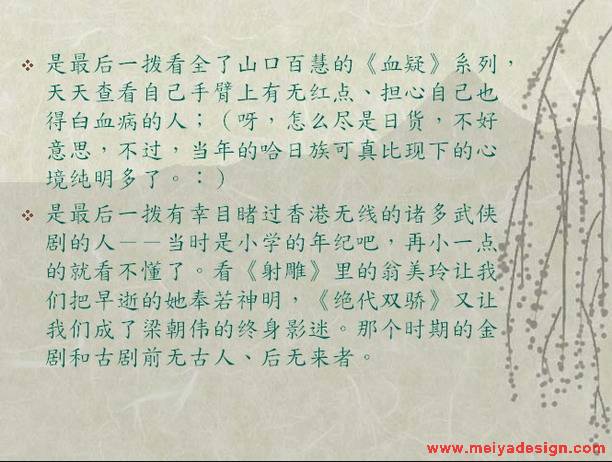 ❖ 是最后一拨看全了山口百慧的《血疑》系列，
天天查看自己手臂上有无红点、担心自己也
得白血病的人；（呀，怎么尽是日货，不好
意思，不过，当年的哈日族可真比现下的心
境纯明多了。：）
❖ 是最后一拨有幸目睹过香港无线的诸多武侠
剧的人－－当时是小学的年纪吧，再小一点
的就看不懂了。看《射雕》里的翁美玲让我
们把早逝的她奉若神明，《绝代双骄》又让
我们成了梁朝伟的终身影迷。那个时期的金
剧和古剧前无古人、后无来者。
www.meiyadesign.com